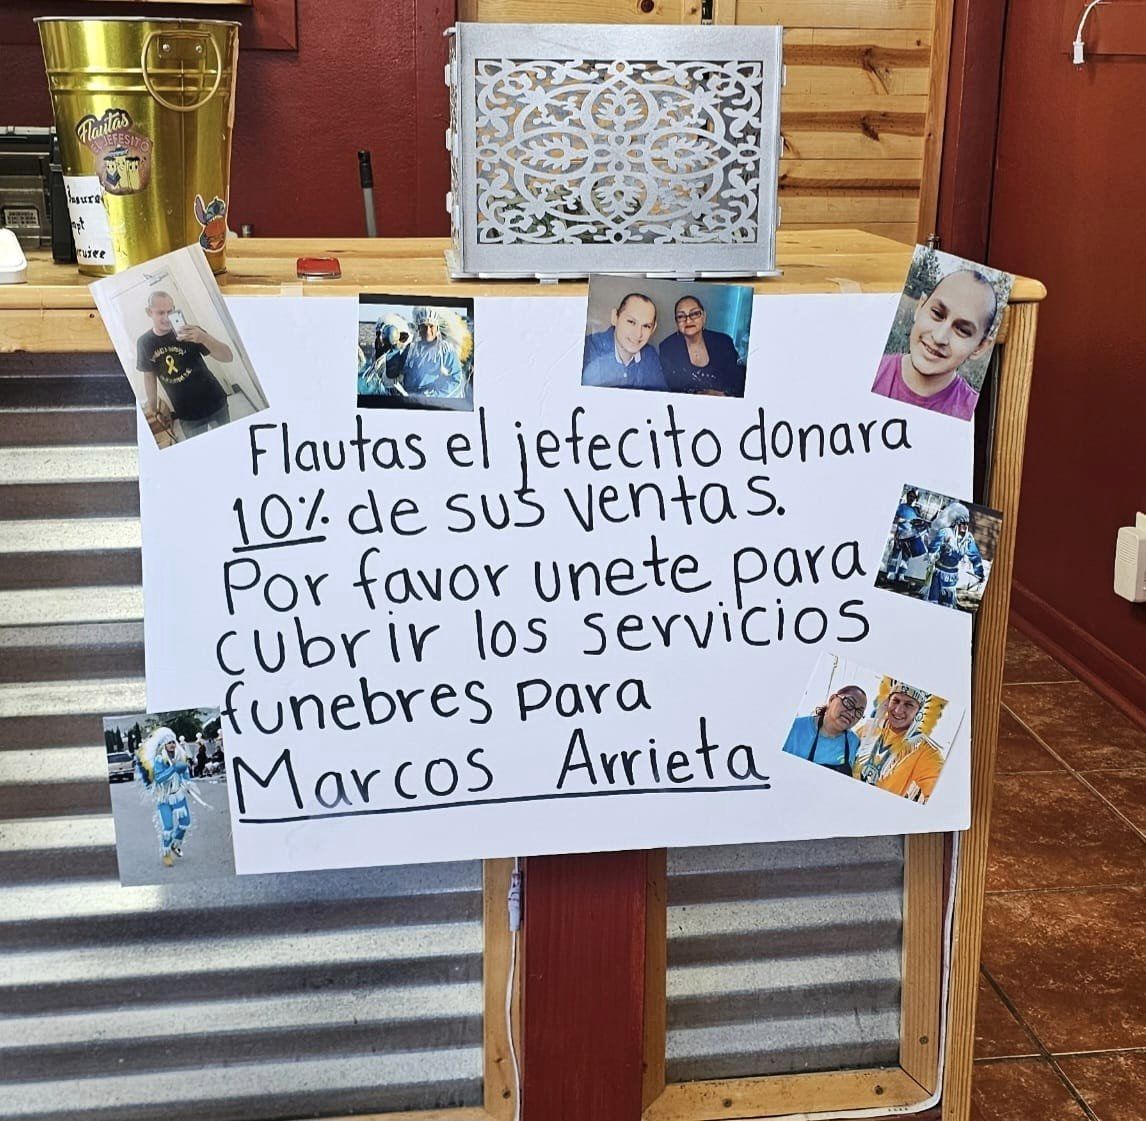 Flautas
EL JEFESITO
Flautas el jefecito donara
10% de sus ventas.
Por favor unete para
cubrir los servicios
funebres para
Marcos Arrieta